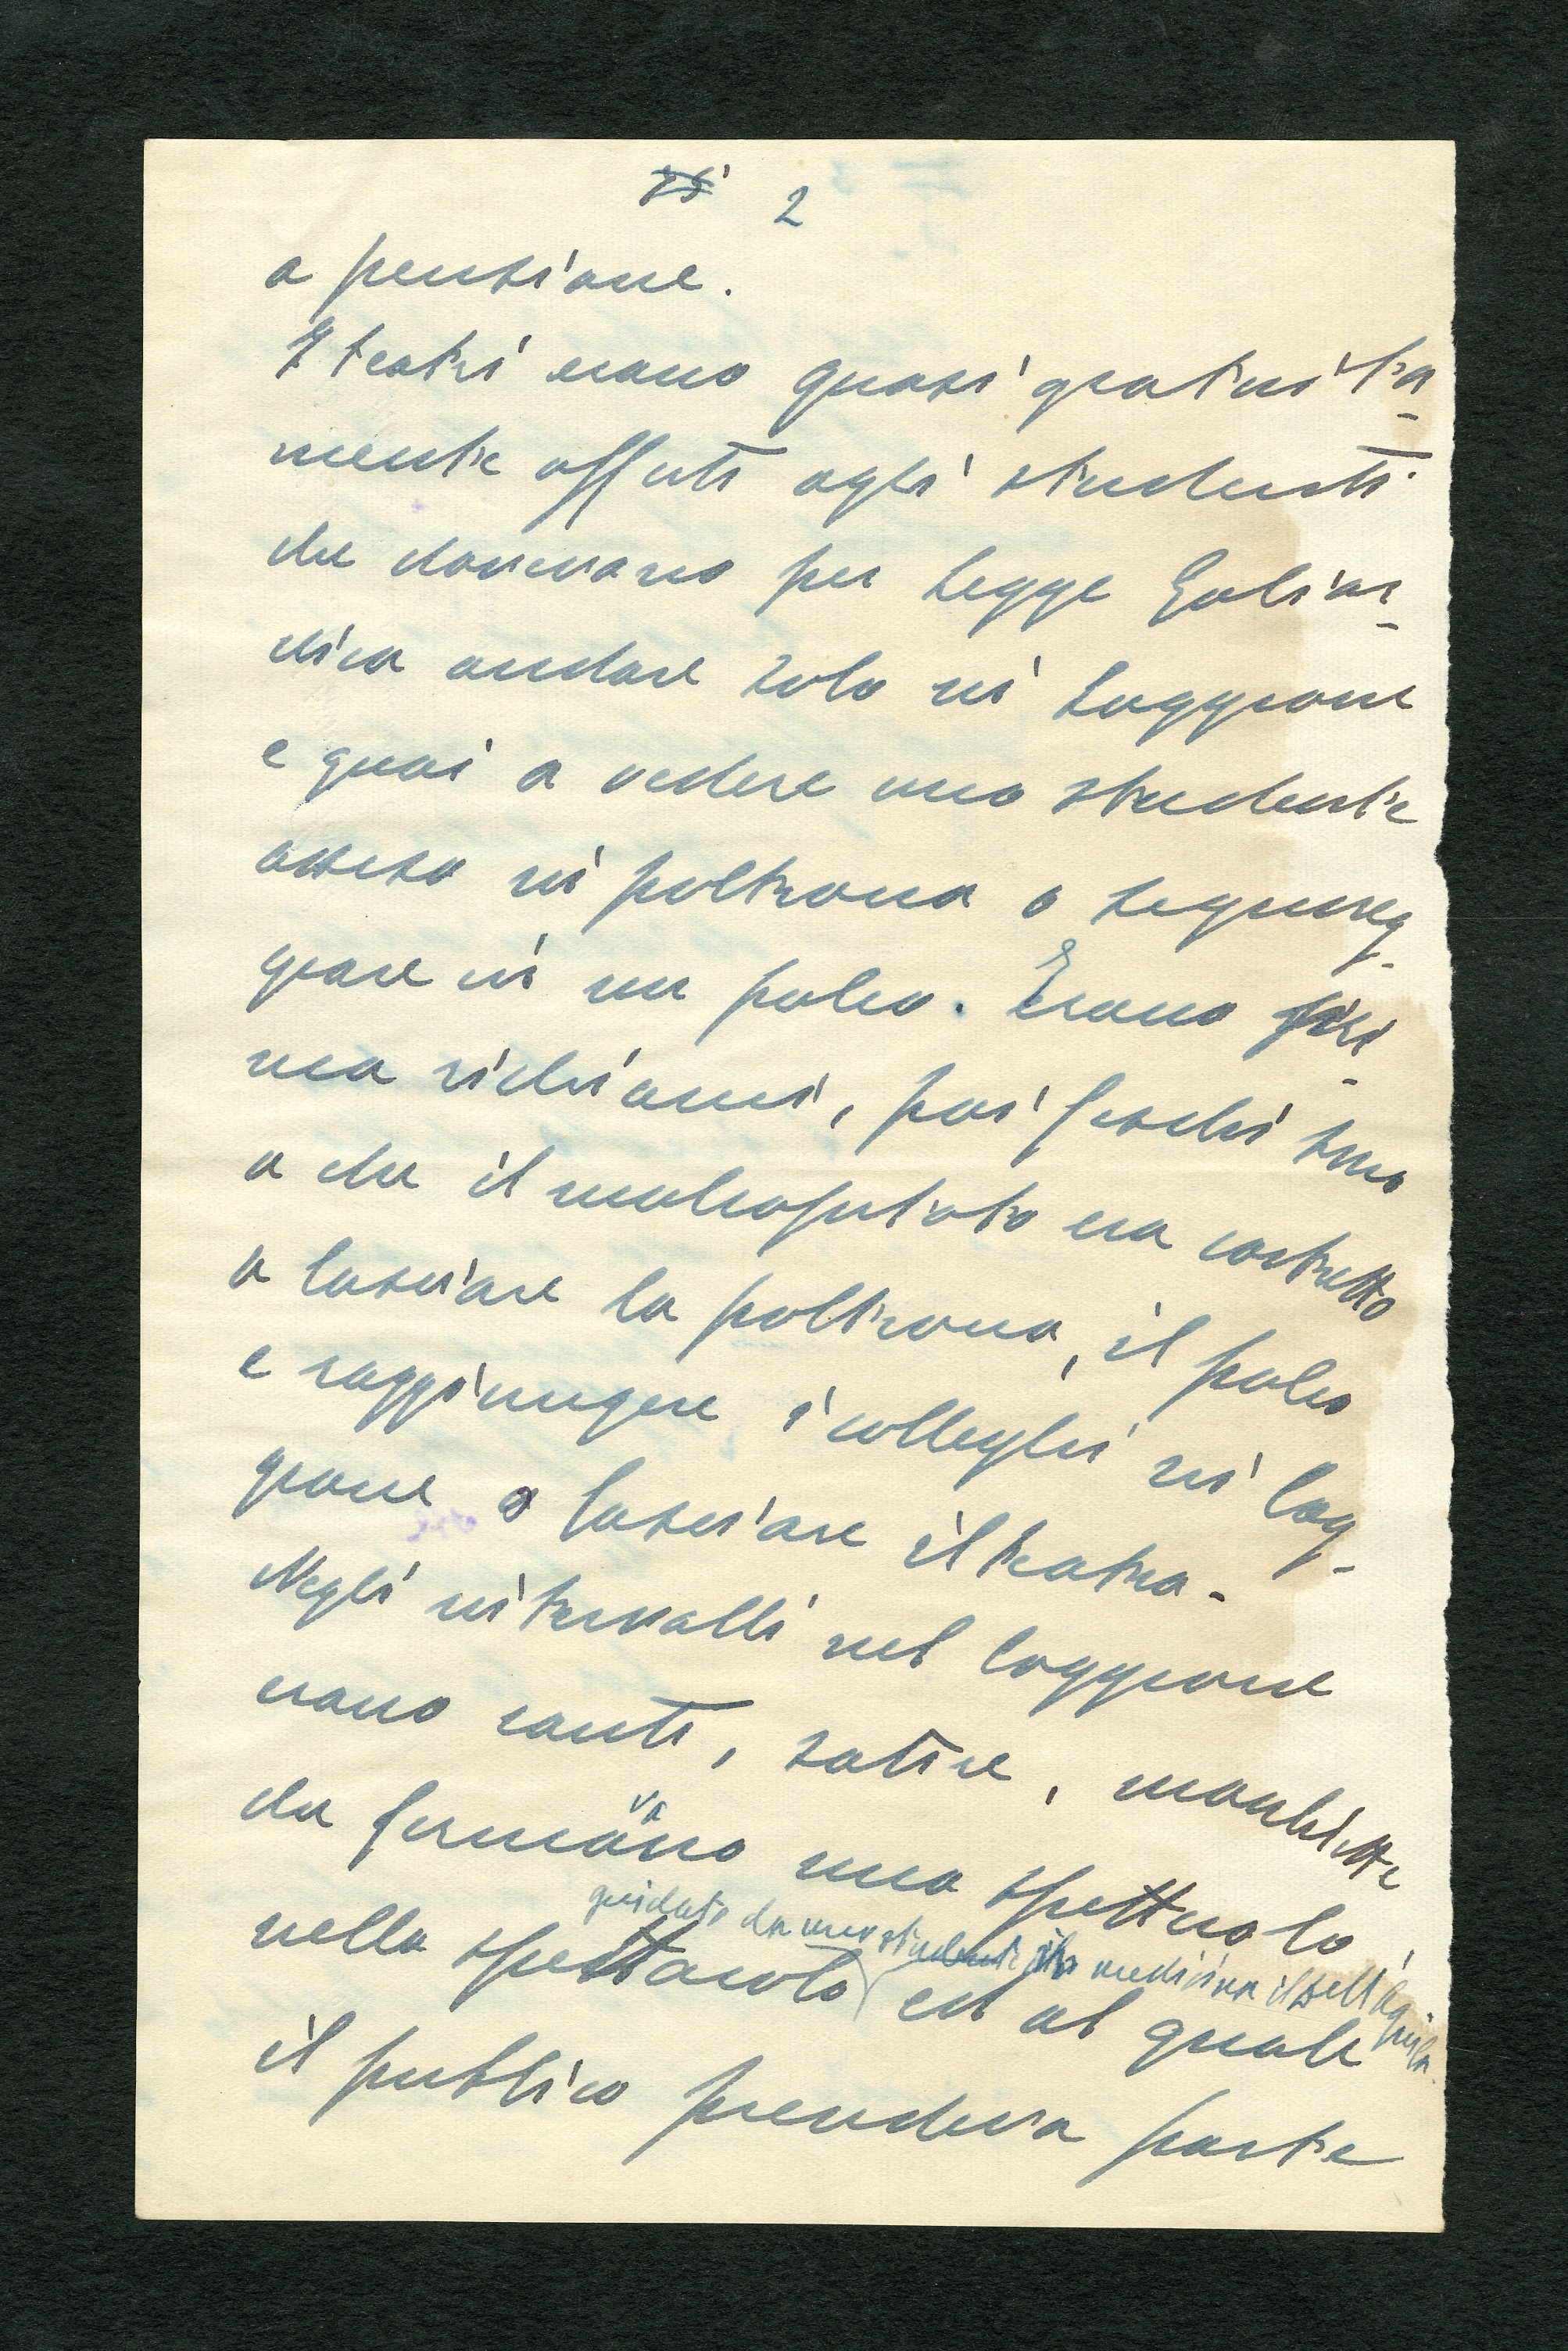 2
a pensione.
I teatri erano quasi gratuita-
mente offerti agli studenti
che dovevano per legge Goliar-
dica andare solo in loggione
e guai a vedere uno studente
assiso in poltrona o
giare in un palco. Erano pri-
ma richiami, poi fischi sino
a che il malcapitato era costretto
a lasciare la poltrona, il palco
e raggiungere i colleghi in log-
gione o lasciare il teatro.
Negli intervalli nel loggione
erano canti, satire, macchiette
che formavano uno spettacolo
guidato da uno studente medicina
nello spettacolo ed al quale
il publico prendeva parte